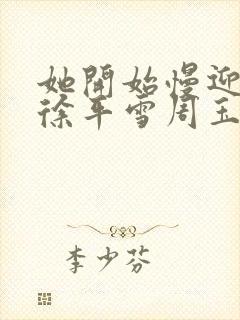 她開始慢迎
徐平雪周玉
李少芬